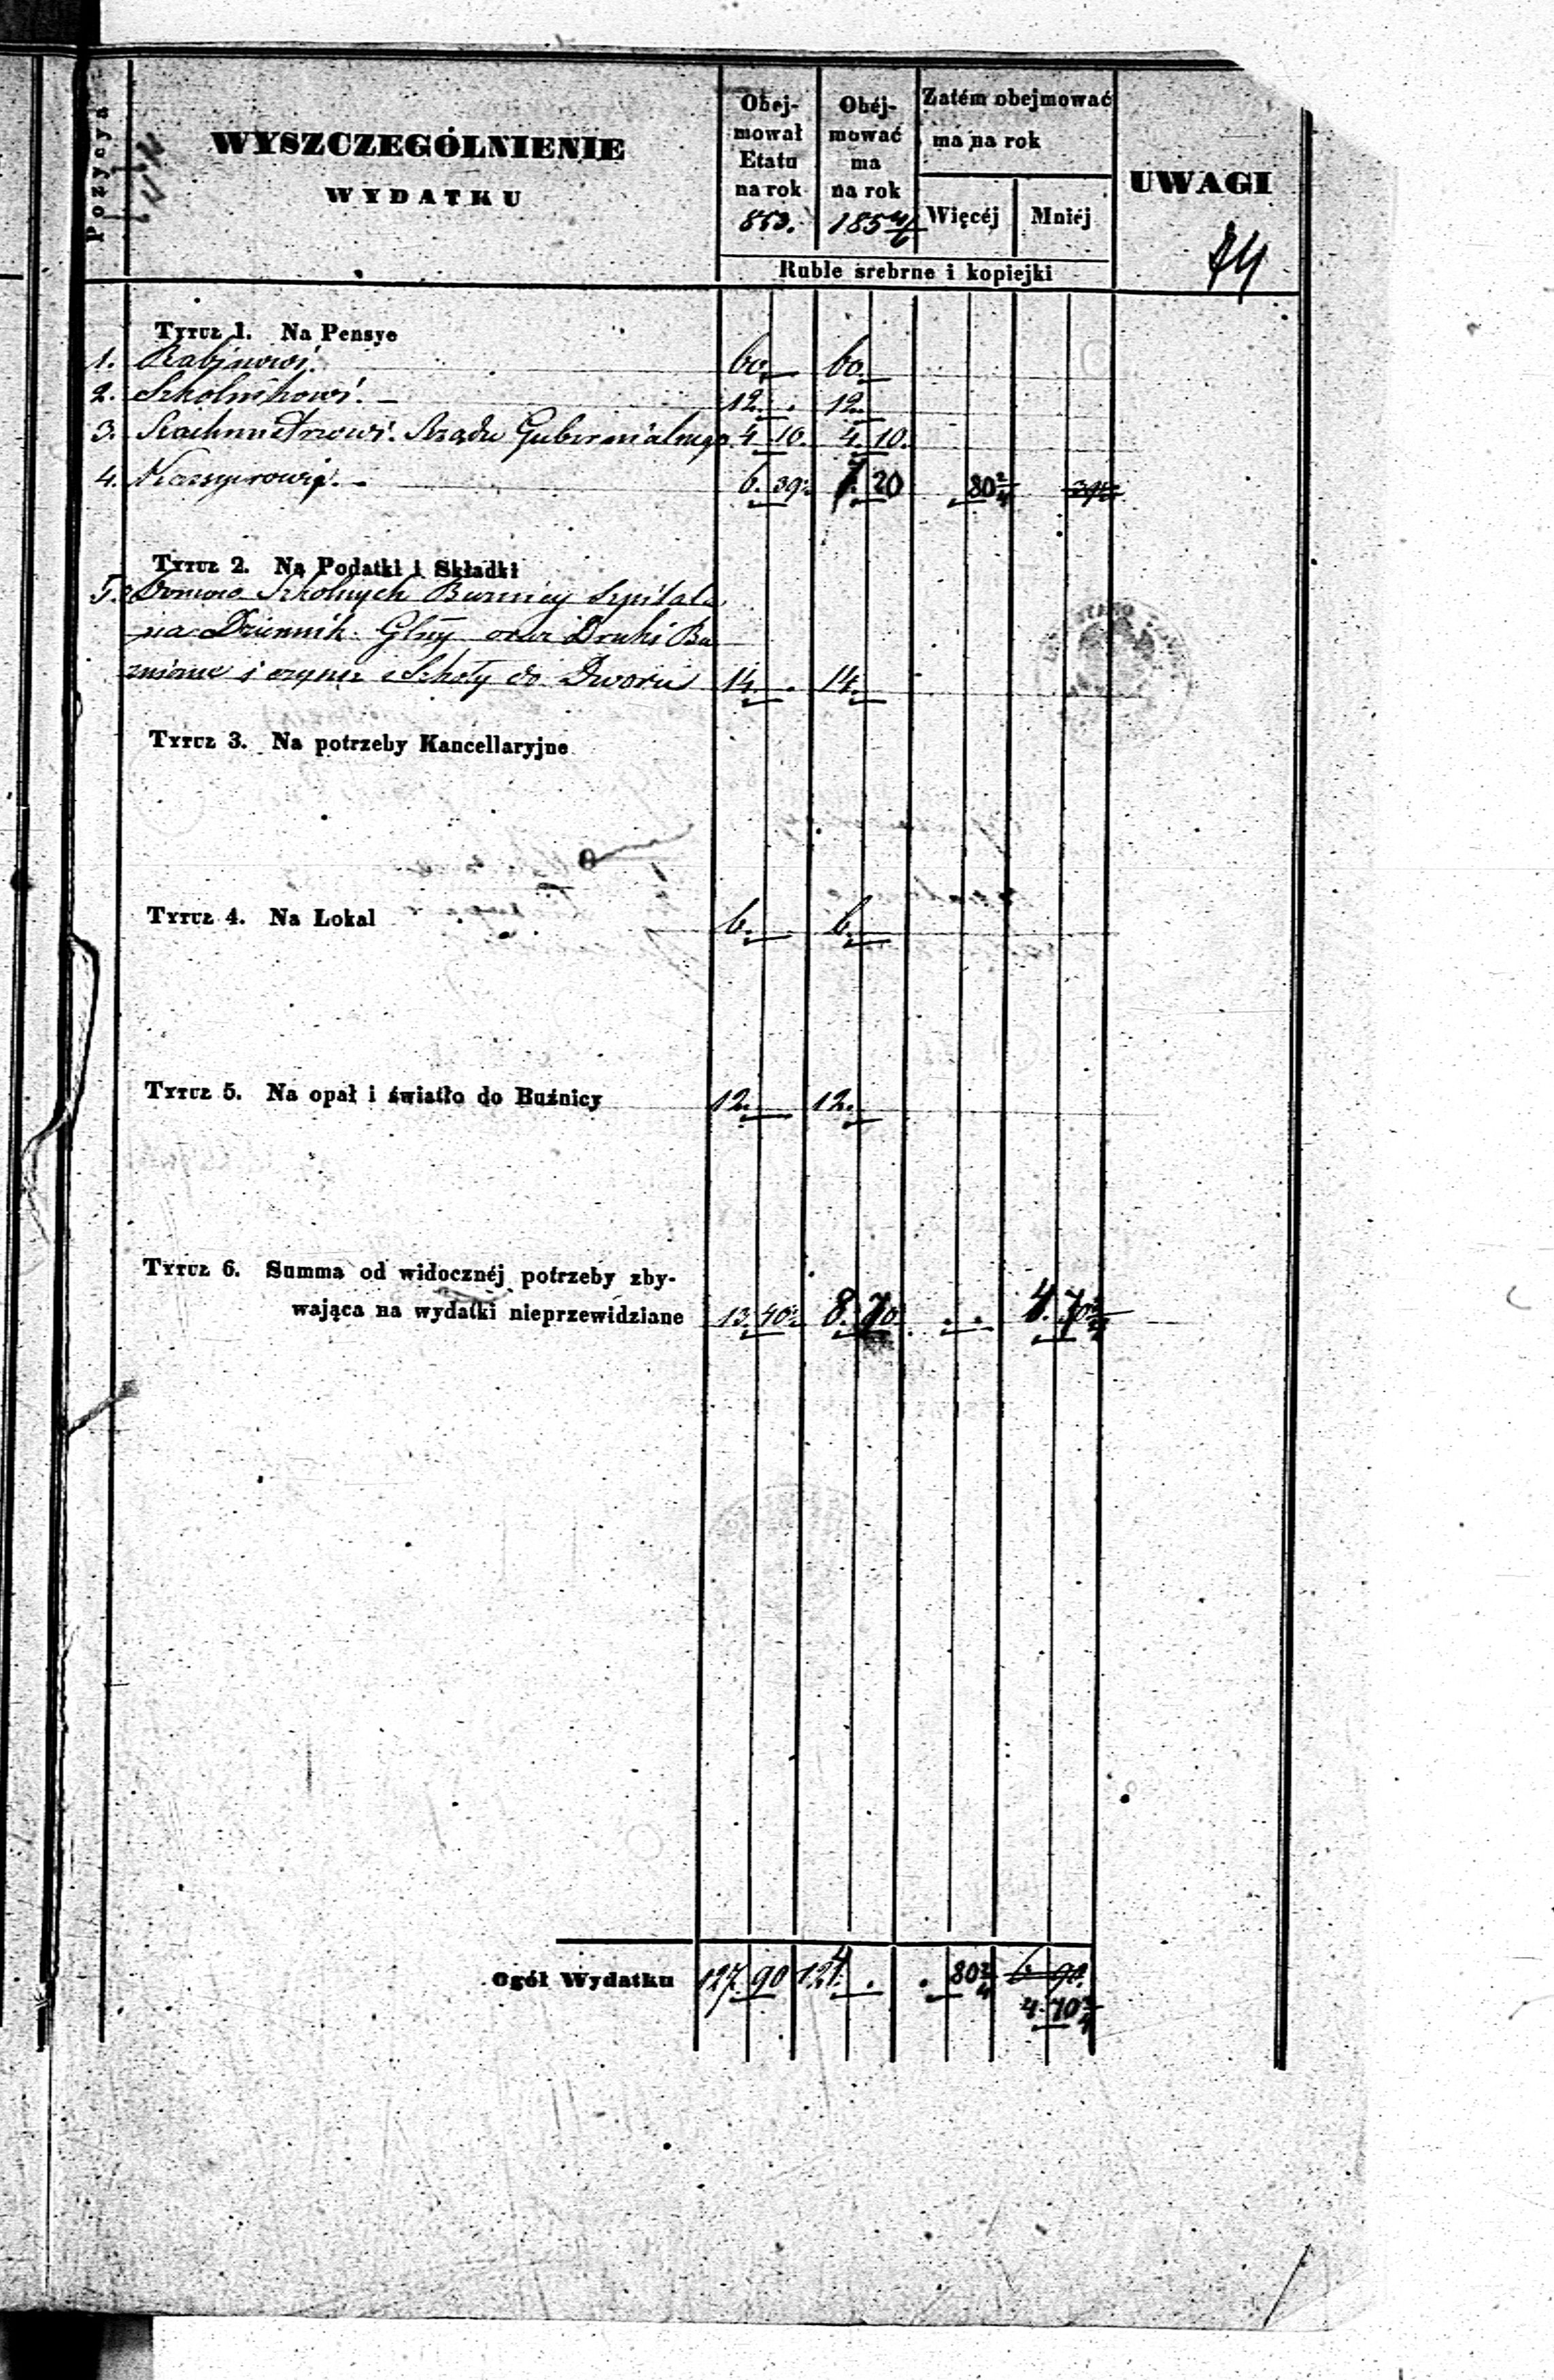 Pozycya
WYSZCZEGÓLNIENIE
WYDATKU
Obej-
mował
Etatu
na rok
853.
Obéj-
mować
ma
na rok
1854/6
Zatém obejmować
ma na rok
Więcéj
Mniéj
UWAGI
74
Ruble srebrne i kopiejki
TYTUŁ 1. Na Pensye
1. Rabinowi. 60. 60.
2. Szkolnikowi. 12. 12.
3. Rachmistrzowi Rządu Gubernialnego 4 10. 4. 10.
4. Kassyerowi. 6. 39½ 7. 20 80 2/4
TYTUŁ 2. Na Podatki i Składki
5. Domów Szkolnych Buznicy Szpitala
na Dziennik Głny oraz Druki Bu
źniczne i czynsz Szkoły do Dworu 14. 14.
TYTUŁ 3. Na potrzeby Kancellaryjne
TYTUŁ 4. Na Lokal 6. 6.
TYTUŁ 5. Na opał i światło do Buźnicy 12. 12.
TYTUŁ 6. Summa od widocznéj potrzeby zby-
wająca na wydatki nieprzewidziane 13. 40½ 8. 70 . . 4. 70 2/4
Ogół Wydatku 127. 90 124. . . 80 2/4 6 90.
4. 70 2/4